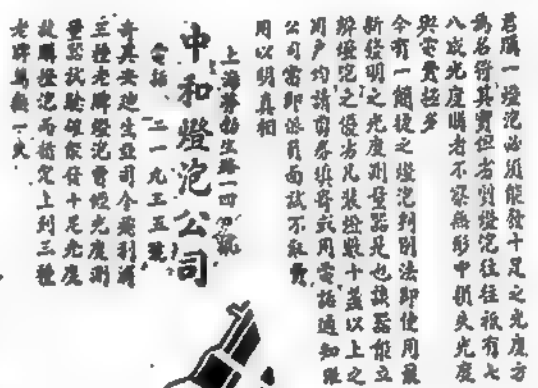 君購一燈泡必須能發十足之光度方
為名符其實但劣質燈泡往往祇有七
八成光度購者不察無形中損失光度
與電費極多
今有一簡捷之燈泡判別法即使用最
新發明之光度測量器是也該器能立
辨燈泡之優劣凡裝燈數十盞以上之
用戶均請剪券填寄或用電話通知敝
公司當即派員面試不取費
用以明真相
上海 路一四 號
中和燈泡公司
電話 一九五五 號
奇異安迪生亞司令飛利浦
三種老牌燈泡曾經光度測
量器試驗確能發十足光度
故購燈泡而指定上列三種
老牌萬無一失